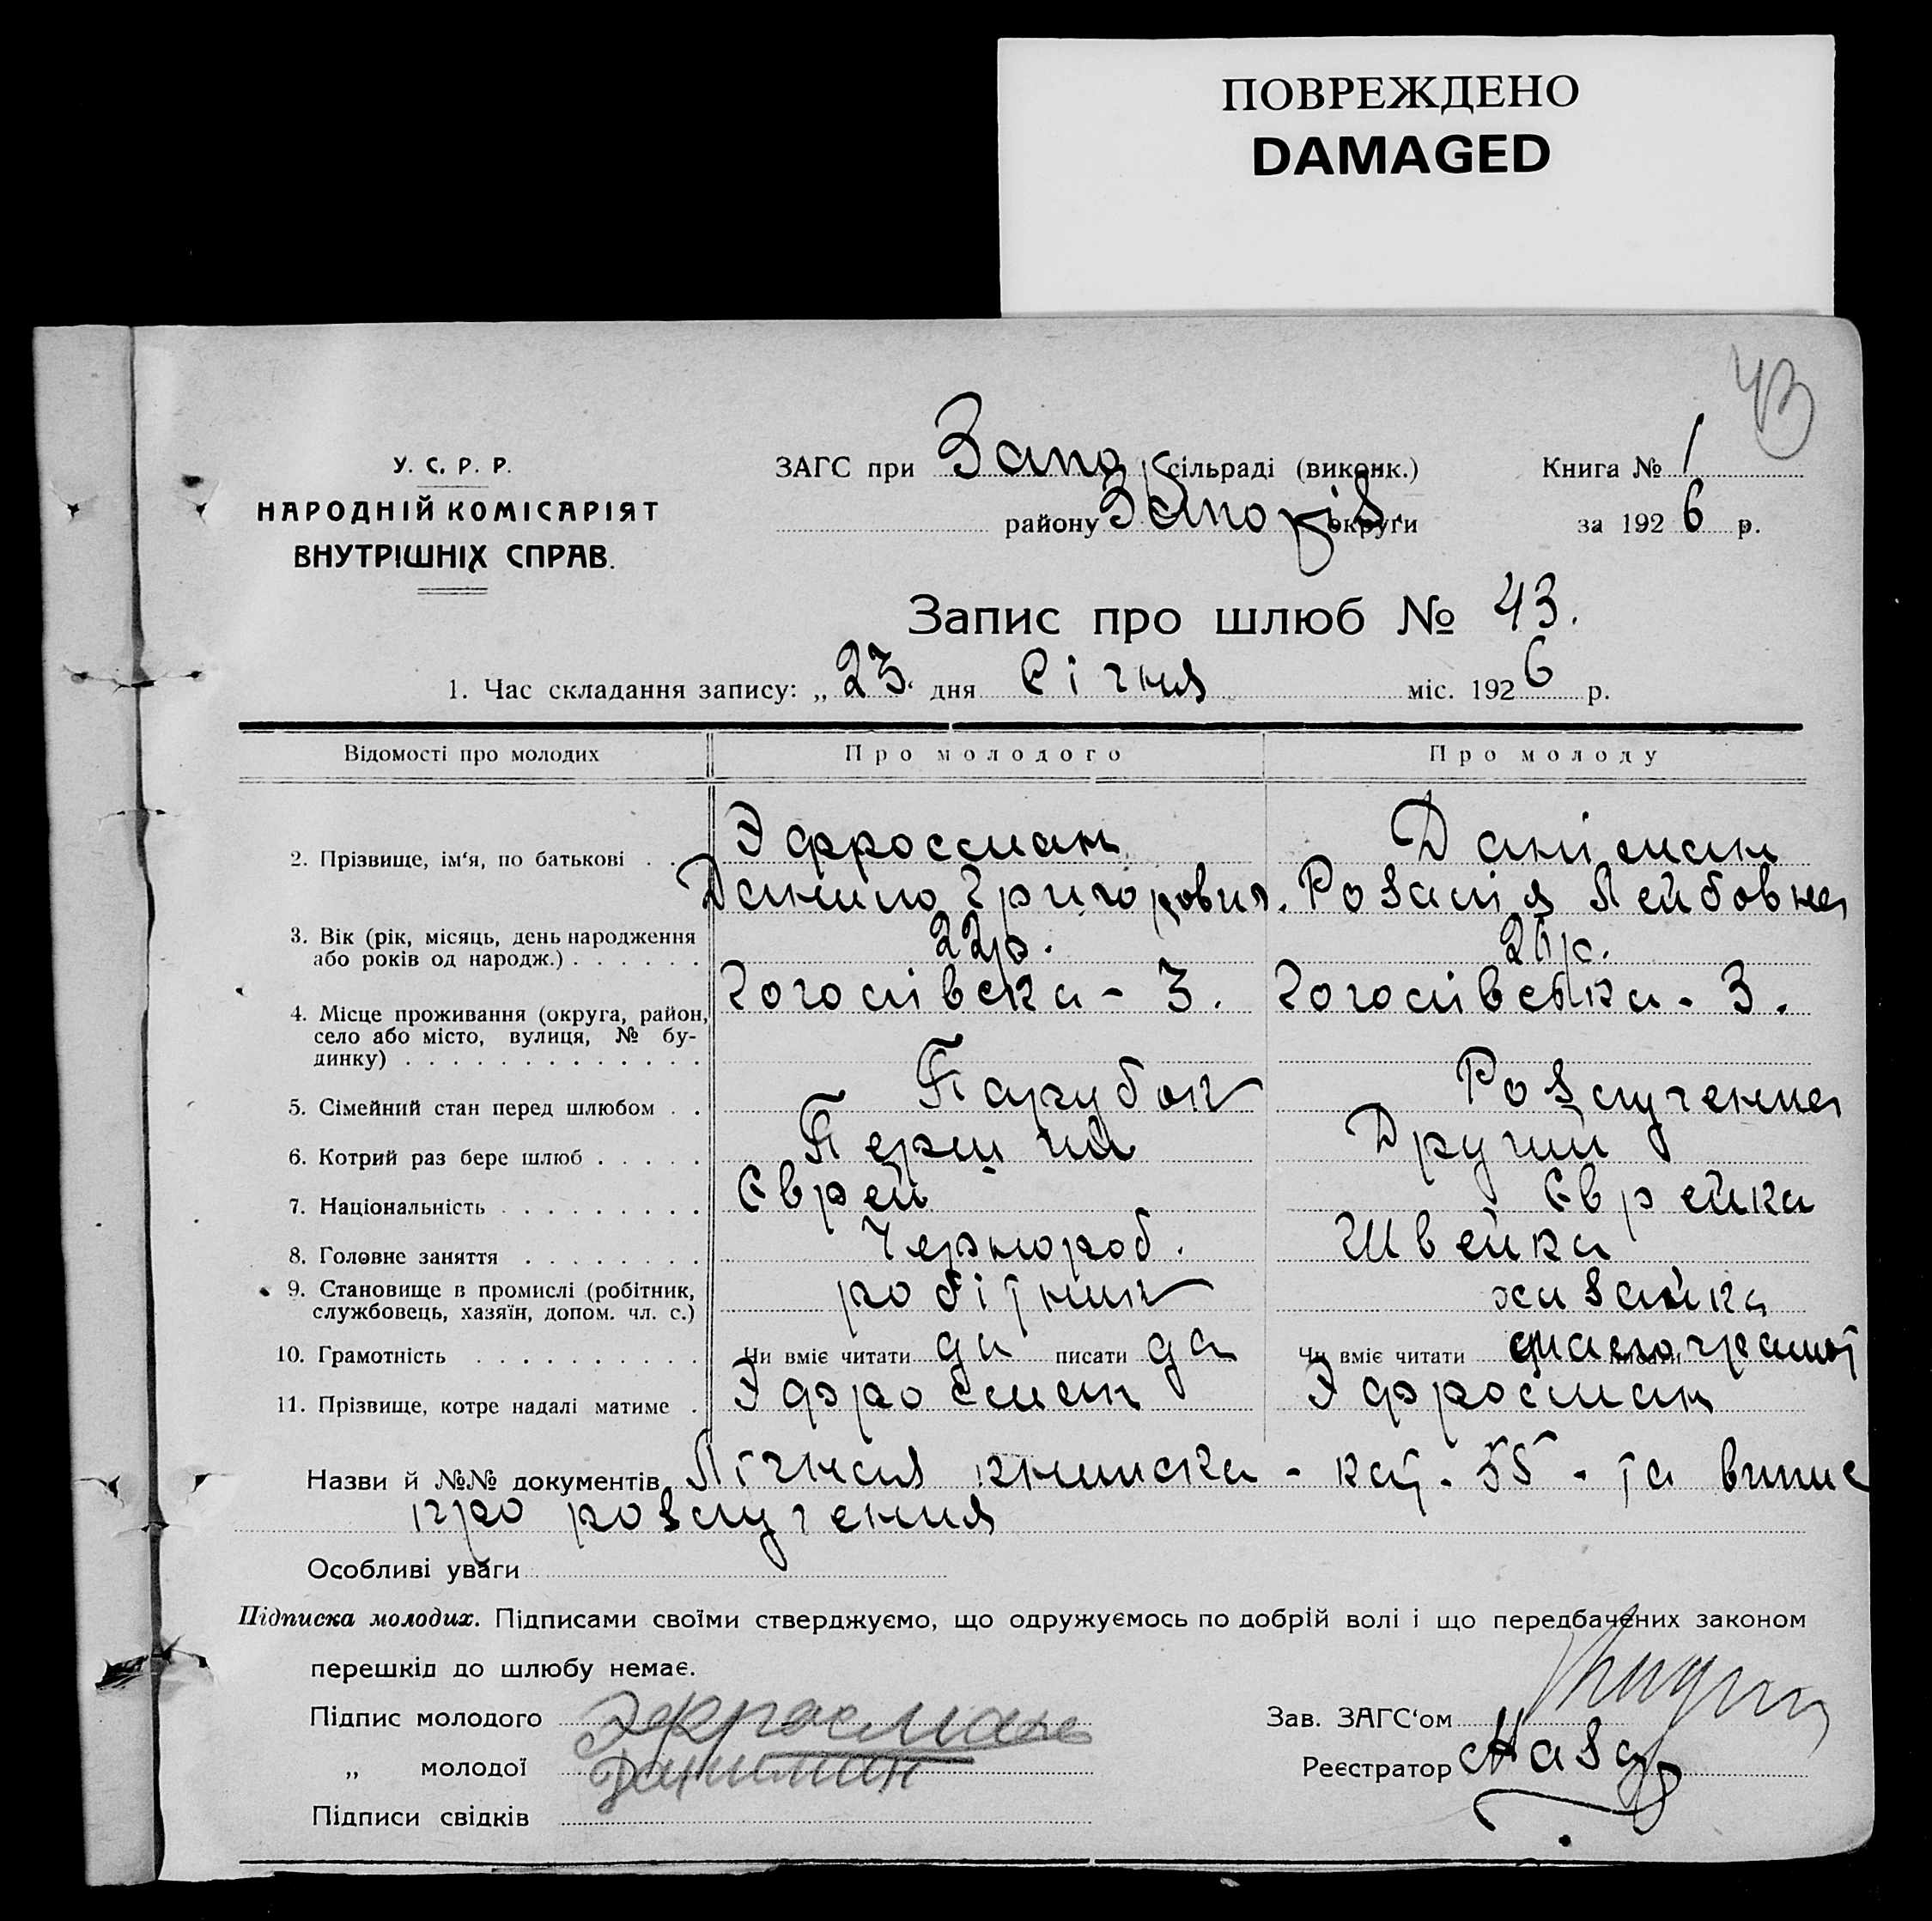 ПОВРЕЖДЕНО
DAMAGED
43
У. С. Р. Р.
НАРОДНІЙ КОМІСАРІЯТ
ВНУТРІШНІХ СПРАВ.
ЗАГС при Запор сільраді (виконк.)
району Запоріз. округи
Книга № 1
за 1926 р.
Запис про шлюб № 43.
1. Час складання запису: „23“ дня Січня міс. 1926 р.
Відомості про молодих Про молодого Про молоду
2. Прізвище, ім'я, по батькові . . Эфроссман Данілман
Данило Григорович. Розалія Лейбовна
3. Вік (рік, місяць, день народження
або років од народж.) . . . . . . 22 р. 26 р.
4. Місце проживання (округа, район,
село або місто, вулиця, № бу-
динку) . . . . . . . . . . . . . Гоголівска - 3. Гоголівська - 3.
5. Сімейний стан перед шлюбом . . Парубок Розлученна
6. Котрий раз бере шлюб . . . . . Перший Другий
7. Національність . . . . . . . . . Єврей Єврейка
8. Головне заняття . . . . . . . . Чернороб. Швейка
9. Становище в промислі (робітник,
службовець, хазяїн, допом. чл. с.) робітник хазайка
10. Грамотність . . . . . . . . . . Чи вміє читати да писати да Чи вміє читати малограмот
11. Прізвище, котре надалі матиме . Эфросман Эфросман
Назви й №№ документів Лічная книжка - кат. 55 - та випис
про розлучення
Особливі уваги
Підписка молодих. Підписами своїми стверджуємо, що одружуємось по добрій волі і що передбачених законом
перешкід до шлюбу немає.
Підпис молодого Эфросман
„ молодої Данилман
Підписи свідків
Зав. ЗАГС'ом
Реєстратор